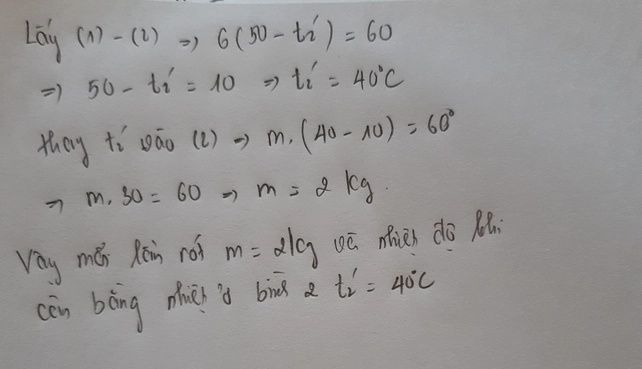 Lấy (1) - (2) => 6(50 - t₂') = 60
=> 50 - t₂' = 10 => t₂' = 40°C
thay t₂' vào (2) => m.(40 - 10) = 60°
=> m.30 = 60 => m = 2 kg.
Vậy mỗi lần rót m = 2kg và nhiệt độ khi
cân bằng nhiệt ở bình 2 t₂' = 40°C